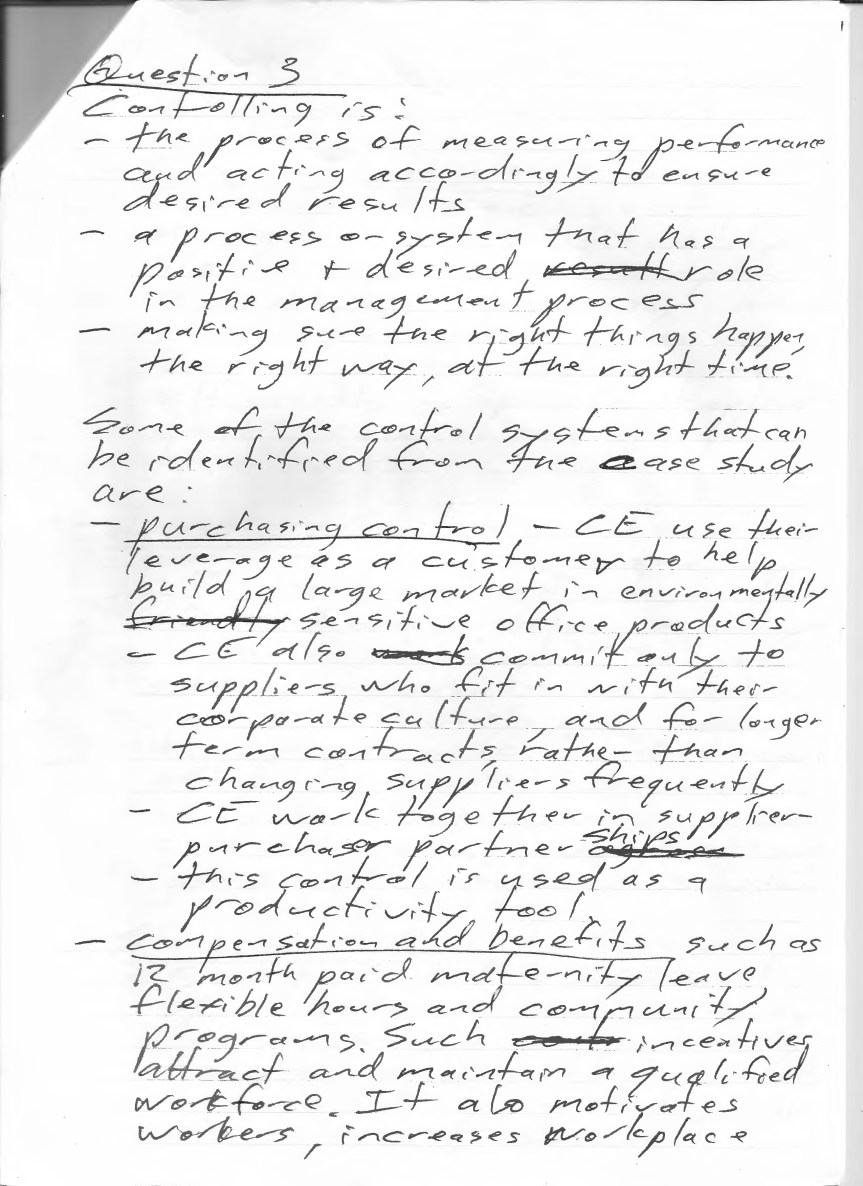 Question 3
Controlling is:
- the process of measuring performance
and acting accordingly to ensure
desired results
- a process or system that has a
positive + desired result role
in the management process
- making sure the right things happen,
the right way, at the right time.
Some of the control systems that can
be identified from the case study
are:
- purchasing control - CE use their
leverage as a customer to help
build a large market in environmentally
friendly sensitive office products
- CE also work commit only to
suppliers who fit in with their
corporate culture, and for longer
term contracts, rather than
changing suppliers frequently
- CE work together in supplier-
purchaser partnerships
- this control is used as a
productivity tool.
- compensation and benefits such as
12 month paid maternity leave,
flexible hours and community
programs. Such incentives
attract and maintain a qualified
workforce. It also motivates
workers, increases workplace